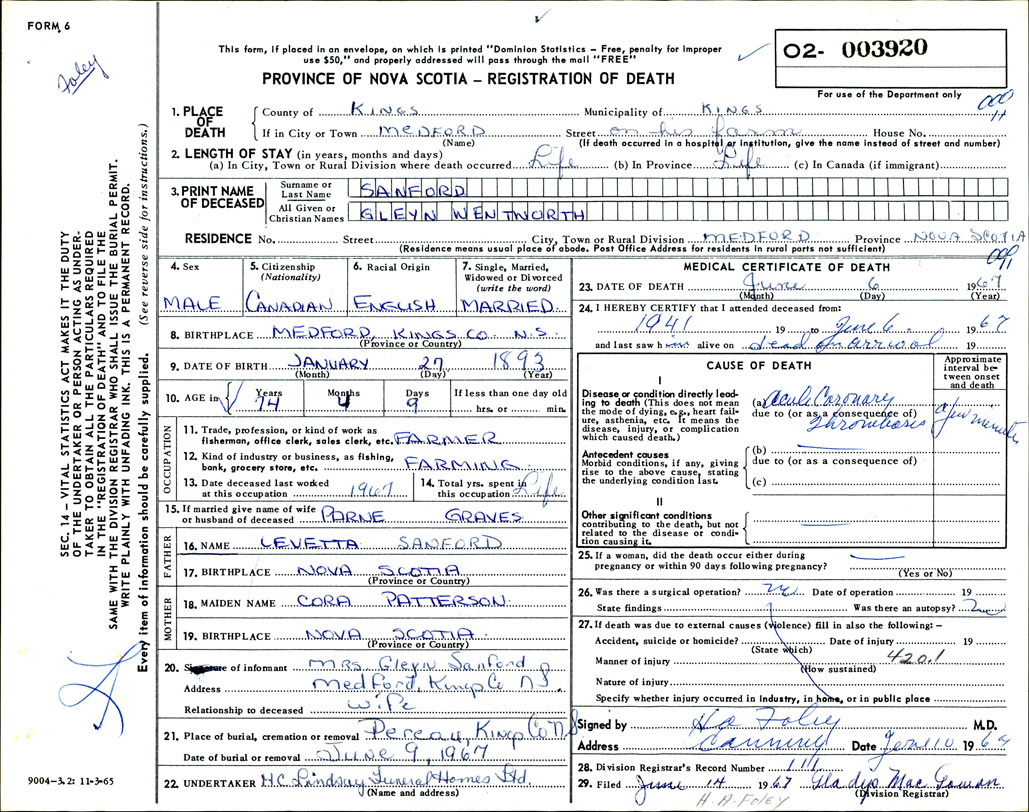 FORM 6
Foley
This form, if placed in an envelope, on which is printed "Dominion Statistics – Free, penalty for improper
use $50," and properly addressed will pass through the mail "FREE"
PROVINCE OF NOVA SCOTIA – REGISTRATION OF DEATH
02- 003920
For use of the Department only
000
11
1. PLACE OF DEATH
County of KINGS Municipality of KINGS
If in City or Town MEDFORD Street on his farm House No.
(Name) (If death occurred in a hospital or institution, give the name instead of street and number)
2. LENGTH OF STAY (in years, months and days)
(a) In City, Town or Rural Division where death occurred Life (b) In Province Life (c) In Canada (if immigrant)
3. PRINT NAME OF DECEASED
Surname or Last Name SANFORD
All Given or Christian Names GLEYN WENTWORTH
RESIDENCE No. Street City, Town or Rural Division MEDFORD Province NOVA SCOTIA
(Residence means usual place of abode. Post Office Address for residents in rural parts not sufficient)
091
4. Sex MALE
5. Citizenship (Nationality) CANADIAN
6. Racial Origin ENGLISH
7. Single, Married, Widowed or Divorced (write the word) MARRIED
8. BIRTHPLACE MEDFORD, KINGS CO. N.S.
(Province or Country)
9. DATE OF BIRTH JANUARY 27 1893
(Month) (Day) (Year)
10. AGE in Years 74 Months 4 Days 9 If less than one day old hrs. or min.
OCCUPATION
11. Trade, profession, or kind of work as
fisherman, office clerk, sales clerk, etc. FARMER
12. Kind of industry or business, as fishing,
bank, grocery store, etc. FARMING
13. Date deceased last worked at this occupation 1967
14. Total yrs. spent in this occupation Life
15. If married give name of wife or husband of deceased PARNE GRAVES
FATHER
16. NAME LEVETTA SANFORD
17. BIRTHPLACE NOVA SCOTIA
(Province or Country)
MOTHER
18. MAIDEN NAME CORA PATTERSON
19. BIRTHPLACE NOVA SCOTIA
(Province or Country)
20. Signature of informant Mrs. Gleyn Sanford
Address Medford, Kings Co N.S.
Relationship to deceased wife
21. Place of burial, cremation or removal Pereau, Kings Co N S
Date of burial or removal June 9, 1967
22. UNDERTAKER H.C. Lindsay Funeral Homes Ltd.
(Name and address)
MEDICAL CERTIFICATE OF DEATH
23. DATE OF DEATH June 6 1967
(Month) (Day) (Year)
24. I HEREBY CERTIFY that I attended deceased from:
1941 19 to June 6 1967
and last saw him alive on dead on arrival 19
CAUSE OF DEATH
Approximate interval between onset and death
I
Disease or condition directly leading to death (This does not mean
the mode of dying, e.g., heart failure, asthenia, etc. It means the
disease, injury, or complication which caused death.)
(a) Acute Coronary
due to (or as a consequence of)
Thrombosis
a few minutes
Antecedent causes
Morbid conditions, if any, giving rise to the above cause, stating the underlying condition last.
(b)
due to (or as a consequence of)
(c)
II
Other significant conditions
contributing to the death, but not related to the disease or condition causing it.
25. If a woman, did the death occur either during
pregnancy or within 90 days following pregnancy?
(Yes or No)
26. Was there a surgical operation? no Date of operation 19
State findings Was there an autopsy? no
27. If death was due to external causes (violence) fill in also the following:–
Accident, suicide or homicide? Date of injury 19
(State which)
Manner of injury 420.1
(How sustained)
Nature of injury
Specify whether injury occurred in industry, in home, or in public place
Signed by H A Foley M.D.
Address Canning Date 10 196
28. Division Registrar's Record Number 111
29. Filed June 14 1967 Gladys Mac Gowan
(Division Registrar)
H. A. FOLEY
SEC. 14 – VITAL STATISTICS ACT MAKES IT THE DUTY
OF THE UNDERTAKER OR PERSON ACTING AS UNDER-
TAKER TO OBTAIN ALL THE PARTICULARS REQUIRED
IN THE "REGISTRATION OF DEATH" AND TO FILE THE
SAME WITH THE DIVISION REGISTRAR WHO SHALL ISSUE THE BURIAL PERMIT.
WRITE PLAINLY WITH UNFADING INK. THIS IS A PERMANENT RECORD.
Every item of information should be carefully supplied. (See reverse side for instructions.)
9004-3.2: 11-3-65